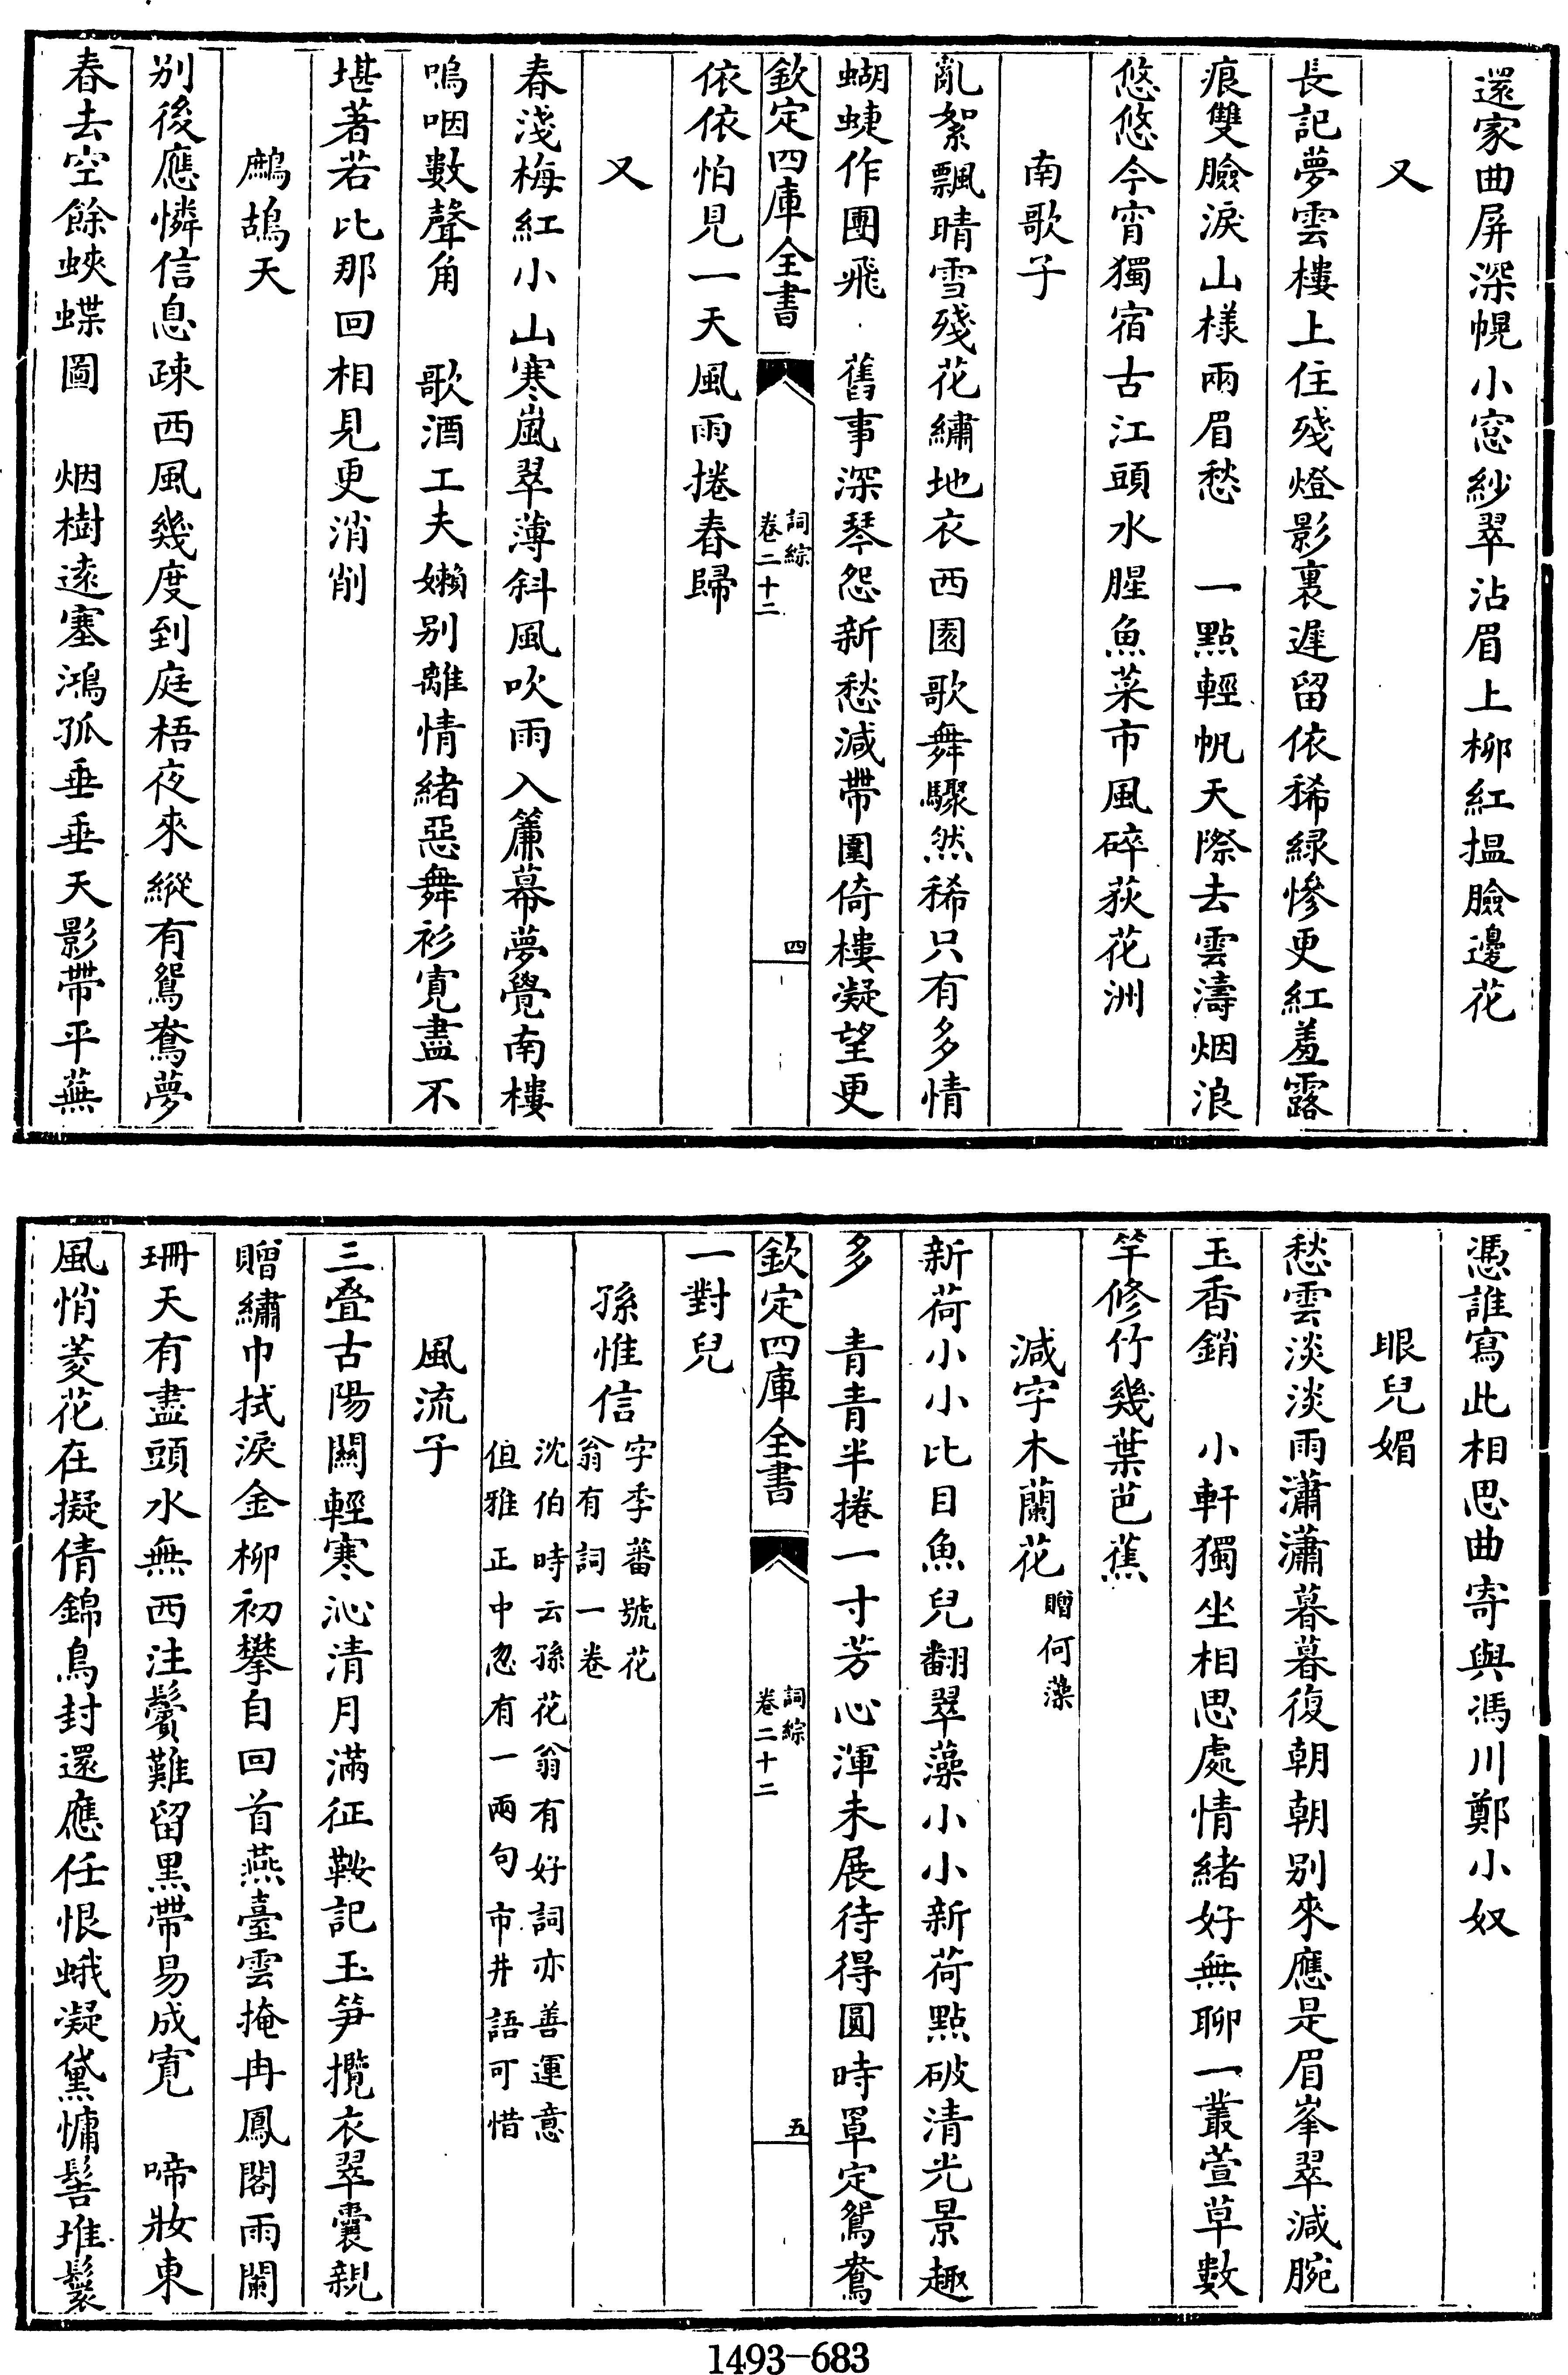 還家曲屏深幌小窓紗翠沾眉上柳紅揾臉邊花
又
長記夢雲樓上住殘燈影裏遲留依稀緑慘更紅羞露
痕雙臉淚山様兩眉愁　一點輕帆天際去雲濤烟浪
悠悠今宵獨宿古江頭水腥魚菜市風碎荻花洲
南歌子
亂絮飄晴雪殘花繡地衣西園歌舞驟然稀只有多情
蝴蜨作團飛　舊事深琴怨新愁減帶圍倚樓凝望更
欽定四庫全書
詞綜
卷二十二
四
依依怕見一天風雨捲春歸
又
春淺梅紅小山寒嵐翠薄斜風吹雨入簾幕夢覺南樓
嗚咽數聲角　歌酒工夫嬾别離情緒惡舞衫寬盡不
堪著若比那回相見更消削
鷓鴣天
别後應憐信息疎西風幾度到庭梧夜來縱有鴛鴦夢
春去空餘蛺蝶圖　烟樹遠塞鴻孤垂垂天影帶平蕪
憑誰寫此相思曲寄與馮川鄭小奴
眼兒媚
愁雲淡淡雨瀟瀟暮暮復朝朝别來應是眉峯翠減腕
玉香銷　小軒獨坐相思處情緒好無聊一叢萱草數
竿修竹幾葉芭蕉
減字木蘭花贈何藻
新荷小小比目魚兒翻翠藻小小新荷點破清光景趣
多　青青半捲一寸芳心渾未展待得圓時罩定鴛鴦
欽定四庫全書
詞綜
卷二十二
五
一對兒
孫惟信字季蕃號花
翁有詞一卷
沈伯時云孫花翁有好詞亦善運意
但雅正中忽有一兩句市井語可惜
風流子
三叠古陽關輕寒沁清月滿征鞍記玉笋攬衣翠囊親
贈繡巾拭淚金柳初攀自回首燕臺雲掩冉鳳閣雨闌
珊天有盡頭水無西注鬢難留黑帶易成寬　啼妝東
風悄菱花在擬倩錦鳥封還應任恨蛾凝黛慵髻堆鬟
1493-683